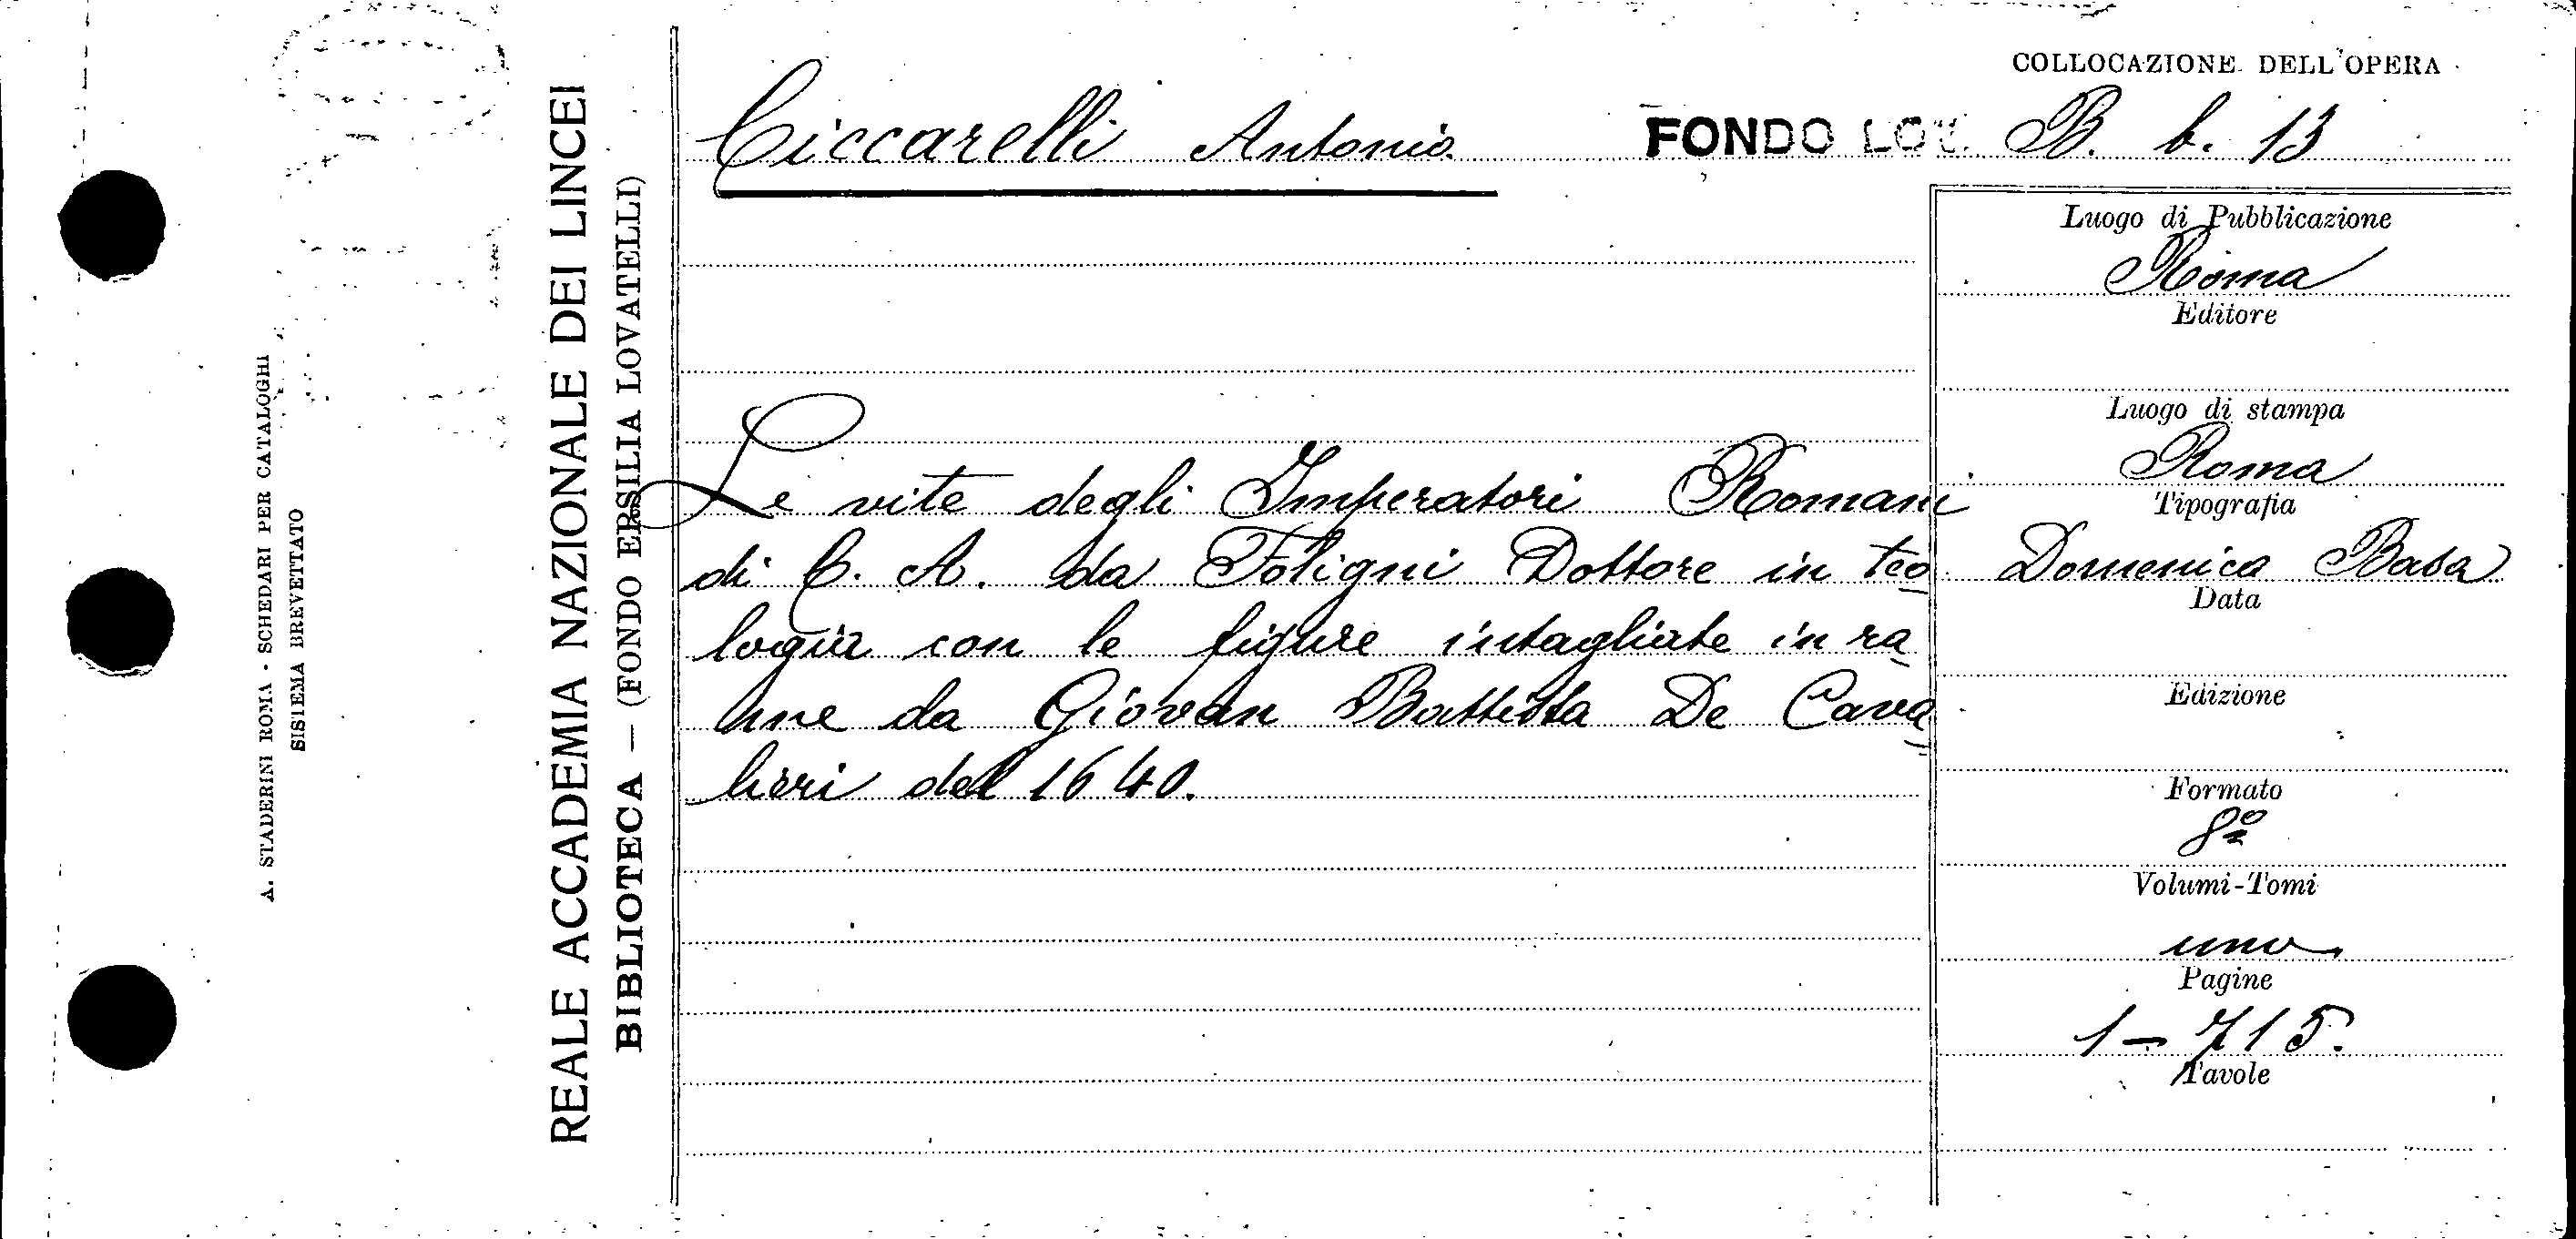 COLLOCAZIONE DELL'OPERA
Ciccarelli Antonio
FONDO LOV. B. b. 13
Le vite degli Imperatori Romani
di C. A. da Foligni Dottore in teo
logia con le figure intagliate in ra
me da Giovan Battista De Cava
lieri del 1640.
Luogo di Pubblicazione
Roma
Editore
Luogo di stampa
Roma
Tipografia
Domenica Basa
Data
Edizione
Formato
8º
Volumi-Tomi
uno
Pagine
1-715.
Tavole
REALE ACCADEMIA NAZIONALE DEI LINCEI
BIBLIOTECA — (FONDO ERSILIA LOVATELLI)
A. STADERINI ROMA - SCHEDARI PER CATALOGHI
SISTEMA BREVETTATO